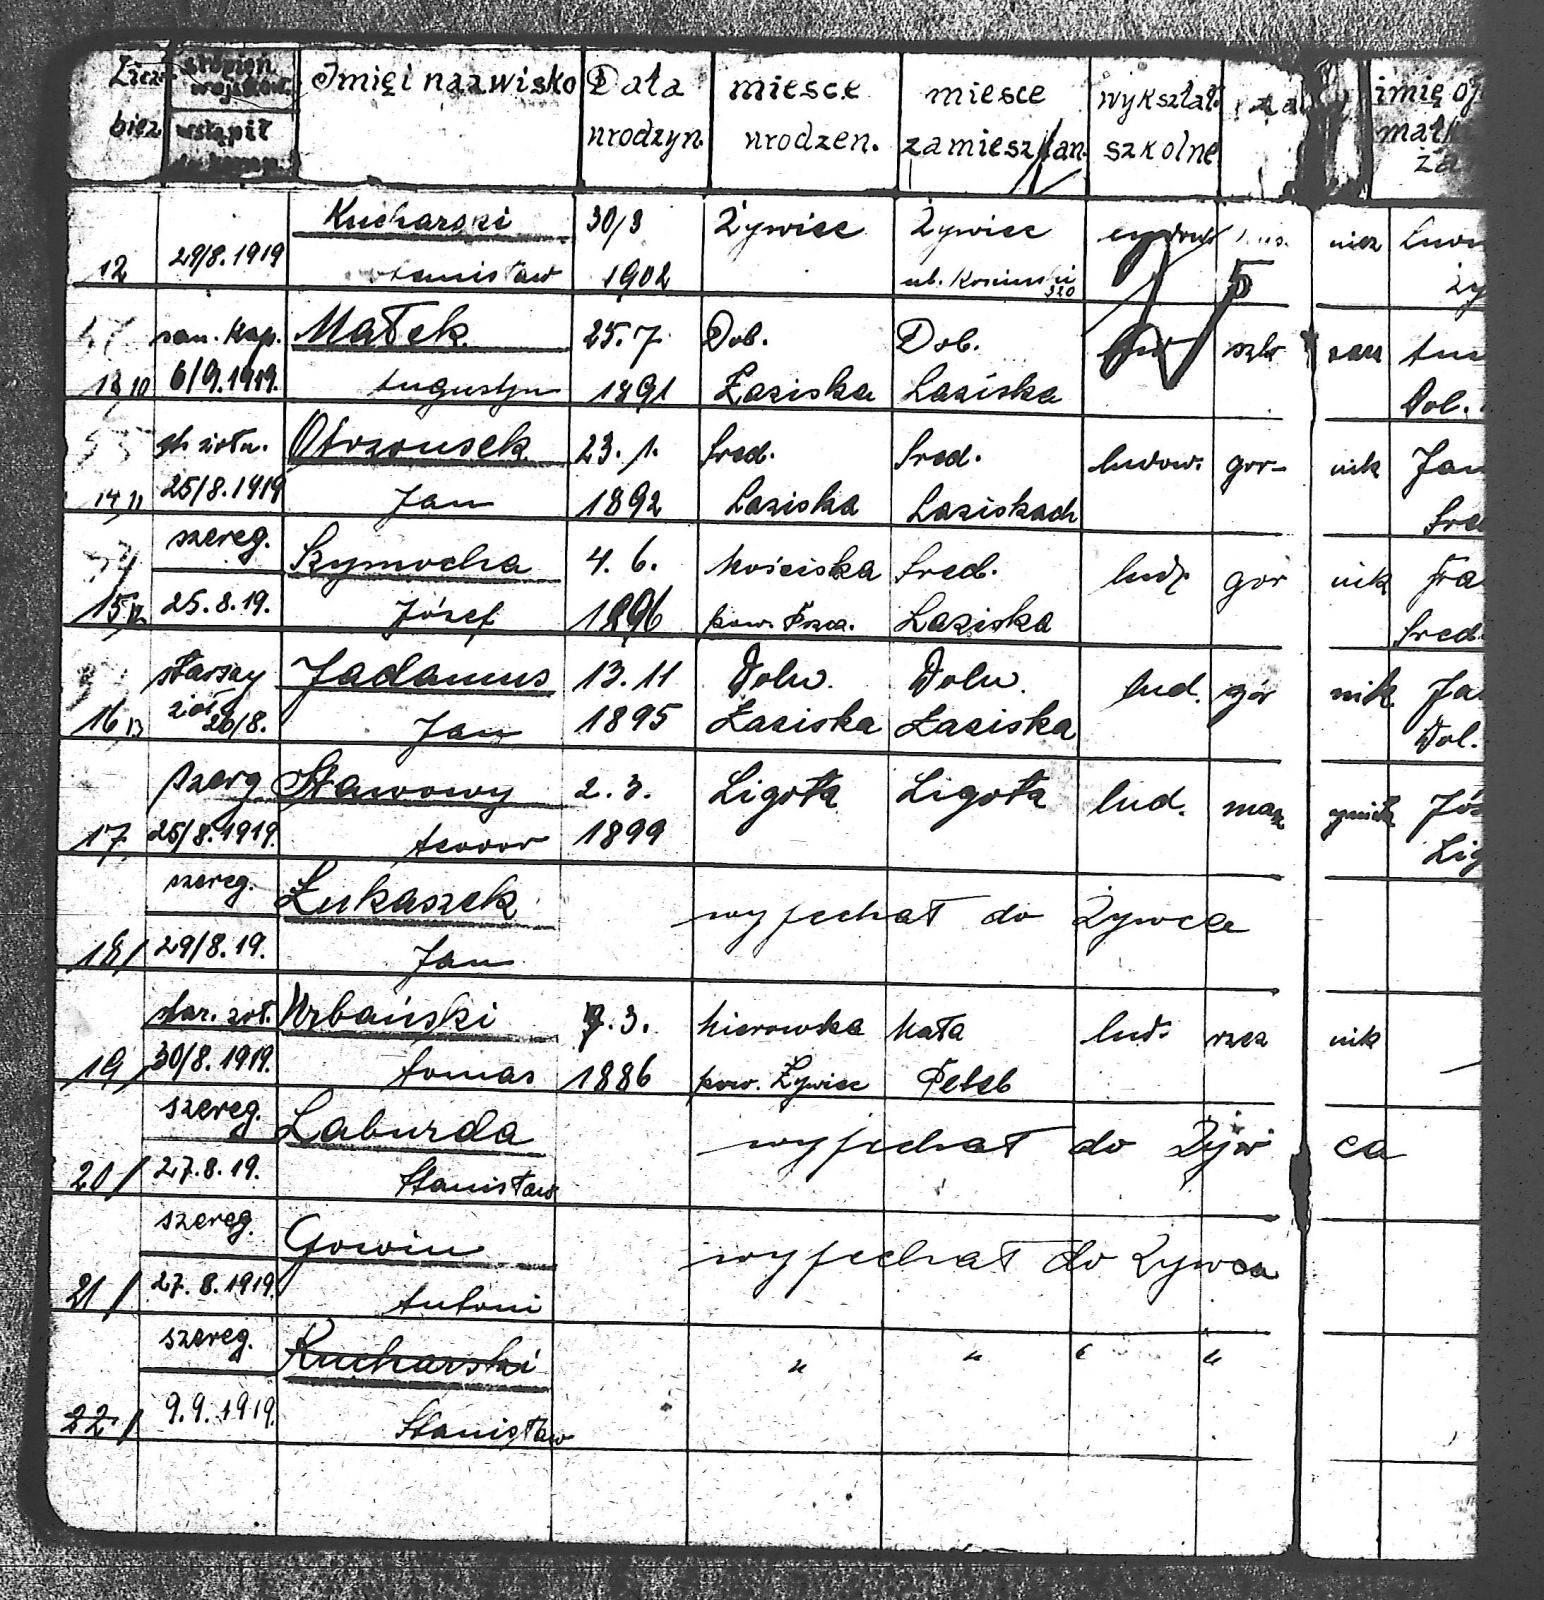 Licz. stopień wojskow. Imię i nazwisko Data miesce miesce wykształ. imię oj
bież. wstąpił urodzyn. urodzen. zamieszkan. szkolne matk
ża
Kucharski 30/3 Żywiec Żywiec niez
12 29/8.1919 Stanisław 1902 ul. Kosciuski 5 ży
san. Kap. Małek 25.7 Dob. Dob. szlo sarz
13 10 6/9.1919. Augustyn 1891 Łaziska Laziska Dol.
st. żołn. Otrzonsek 23.1. Sred. Sred. ludow. gor- nik Jan
14 11 25/8.1919 Jan 1892 Laziska Laziskach Sred
szereg. Szymocha 4.6. Mościska Sred. lud. gor nik Fra
15 12 25.8.19. Józef 1896 pow. Laziska Sred.
starszy Jadamus 13.11 Doln. Doln. lud. gór nik Ja
16 13 żoł. 20/8. Jan 1895 Łaziska Łaziska Dol.
szerg Stawowy 2.3. Ligota Ligota lud. masz ynista Józ
17 25/8.1919. Teodor 1899 Lig
szereg. Łukaszek wyjechał do Żywca
18/ 29/8.19. Jan
star. żoł. Urbański 7.3. Mierowska Mała lud. rzez nik
19/ 30/8.1919. Tomas 1886 pow. Żywiec
szereg. Laburda wyjechał do Żyw ca
20/ 27.8.19. Stanisław
szereg. Gowin wyjechał do Żywca
21/ 27.8.1919. Antoni
szereg. Kucharski " " " "
22/ 9.9.1919. Stanisław